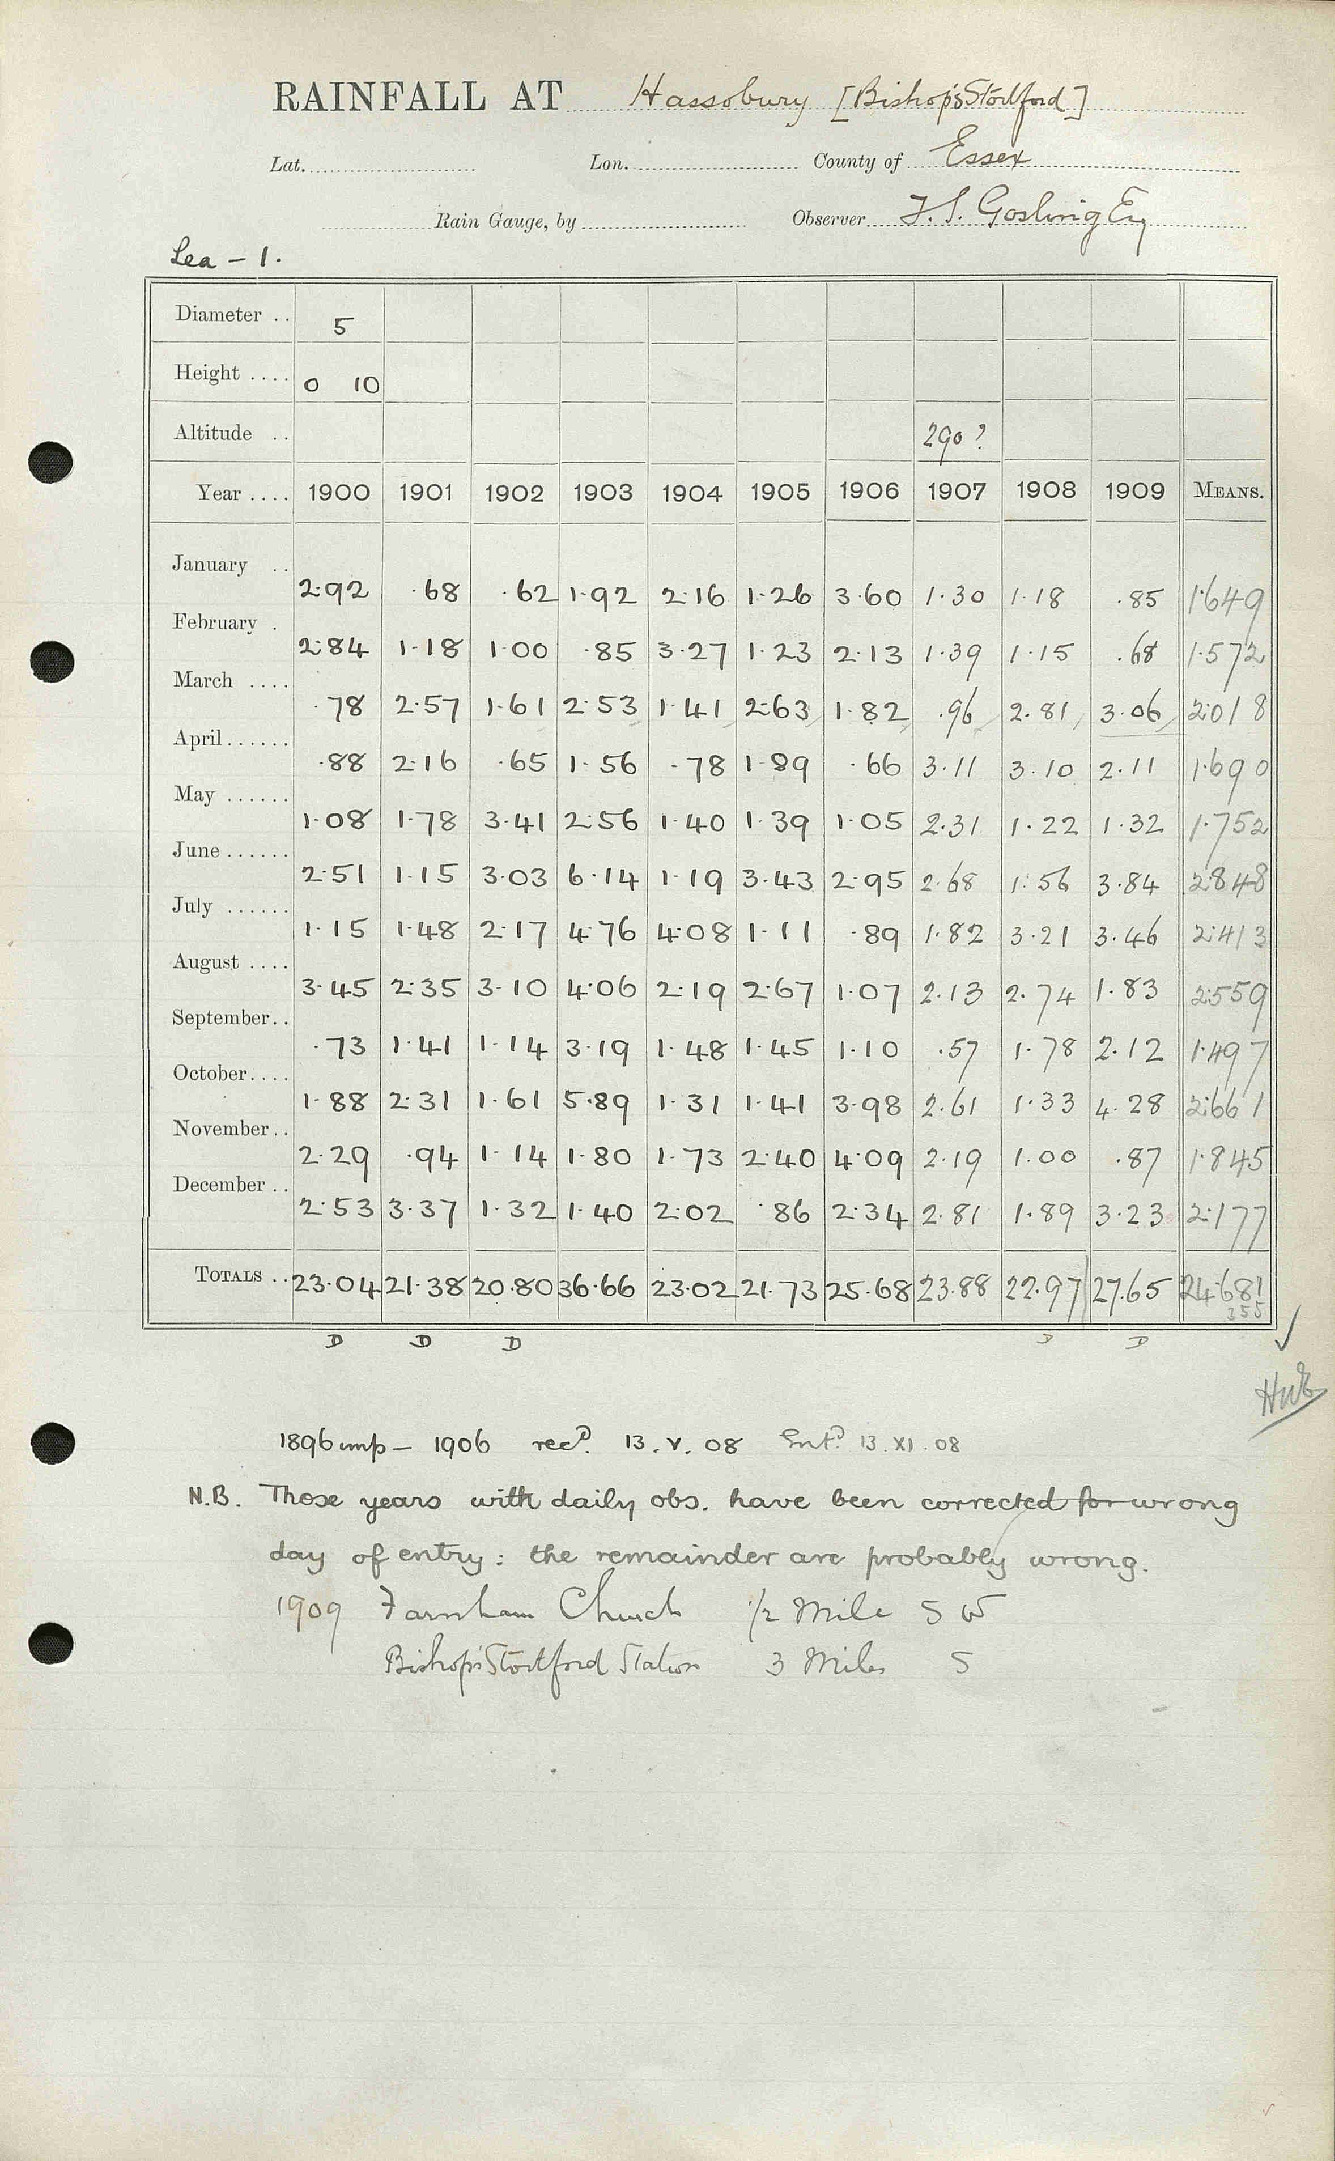 RAINFALL AT Hassobury [Bishop's Stortford]
Lat. Lon. County of Essex
Rain Gauge, by Observer F.S. Gosling Esq
Lea - 1.
Diameter .. 5
Height .... 0 10
Altitude .. 290?
Year .... 1900 1901 1902 1903 1904 1905 1906 1907 1908 1909 MEANS.
January .. 2.92 .68 .62 1.92 2.16 1.26 3.60 1.30 1.18 .85 1.649
February . 2.84 1.18 1.00 .85 3.27 1.23 2.13 1.39 1.15 .68 1.572
March .... .78 2.57 1.61 2.53 1.41 2.63 1.82 .96 2.81 3.06 2.018
April...... .88 2.16 .65 1.56 .78 1.89 .66 3.11 3.10 2.11 1.690
May ...... 1.08 1.78 3.41 2.56 1.40 1.39 1.05 2.31 1.22 1.32 1.752
June ...... 2.51 1.15 3.03 6.14 1.19 3.43 2.95 2.68 1.56 3.84 2.848
July ...... 1.15 1.48 2.17 4.76 4.08 1.11 .89 1.82 3.21 3.46 2.413
August .... 3.45 2.35 3.10 4.06 2.19 2.67 1.07 2.13 2.74 1.83 2.559
September.. .73 1.41 1.14 3.19 1.48 1.45 1.10 .57 1.78 2.12 1.497
October.... 1.88 2.31 1.61 5.89 1.31 1.41 3.98 2.61 1.33 4.28 2.661
November.. 2.29 .94 1.14 1.80 1.73 2.40 4.09 2.19 1.00 .87 1.845
December .. 2.53 3.37 1.32 1.40 2.02 .86 2.34 2.81 1.89 3.23 2.177
TOTALS .. 23.04 21.38 20.80 36.66 23.02 21.73 25.68 23.88 22.97 27.65 24.681
355
D D D D D
1896 imp - 1906 recd. 13.V.08 Entd 13.XI.08
N.B. Those years with daily obs. have been corrected for wrong
day of entry: the remainder are probably wrong.
1909 Farnham Church 1/2 Mile SW
Bishop's Stortford Station 3 Miles S